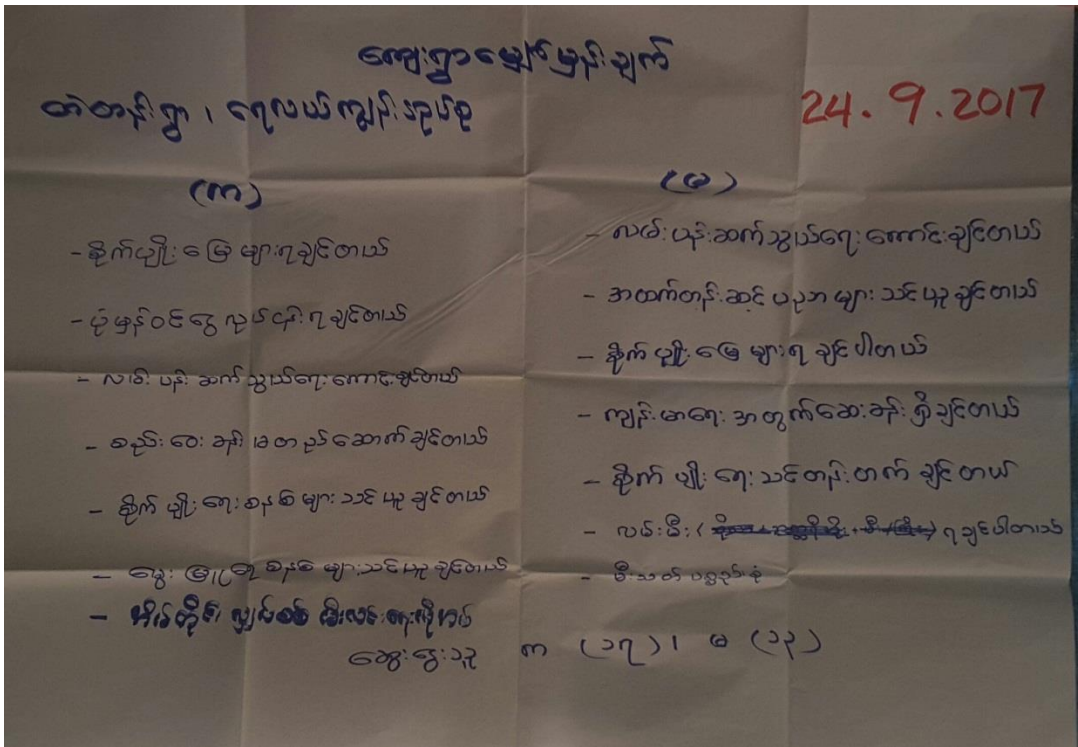 ကျေးရွာမျှော်မှန်းချက်
တဲတန်းရွာ၊ ရေလယ်ကျွန်းအုပ်စု
24.9.2017
(ကျား)
- စိုက်ပျိုးမြေများရချင်တယ်
- ပုံမှန်ဝင်ငွေလုပ်ငန်းရချင်တယ်
- လမ်းပန်းဆက်သွယ်ရေးကောင်းချင်တယ်
- စည်းဝေးခန်းမတည်ဆောက်ချင်တယ်
- စိုက်ပျိုးရေးစနစ်များသင်ယူချင်တယ်
- မွေးမြူရေးစနစ်များသင်ယူချင်တယ်
- အိမ်တိုင်း လျှပ်စစ်မီးလင်းရေးလိုအပ်
(မ)
- လမ်းပန်းဆက်သွယ်ရေးကောင်းချင်တယ်
- အထက်တန်းဆင့်ပညာများသင်ယူချင်တယ်
- စိုက်ပျိုးမြေများရချင်ပါတယ်
- ကျန်းမာရေးအတွက်ဆေးခန်းရှိချင်တယ်
- စိုက်ပျိုးရေးသင်တန်းတက်ချင်တယ်
- လမ်းမီး ရချင်ပါတယ်
- မီးသတ်ပစ္စည်းစုံ
ဆွေးနွေးသူ ကျား (၁၇)၊ မ (၁၃)